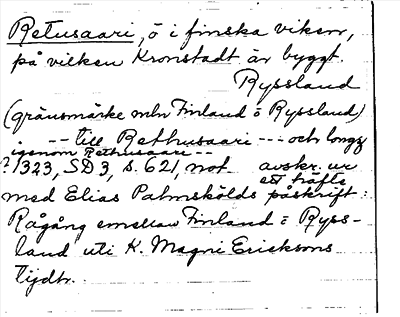 Retusaari, ö i finska viken,
på vilken Kronstadt är byggt.
Ryssland
(gränsmärke mln Finland o Ryssland)
-- till Rethusaari --- och longz
igenom Rethusaari --
? 1323, SD 3, s. 621, not. avskr. ur
ett häfte
med Elias Palmskölds påskrift:
Rågång emellan Finland o Ryss-
land uti K. Magni Ericksons
tijdtr.